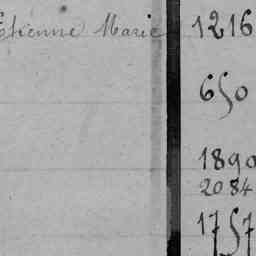 Etienne Marie 1216
650
1890
2084
1757